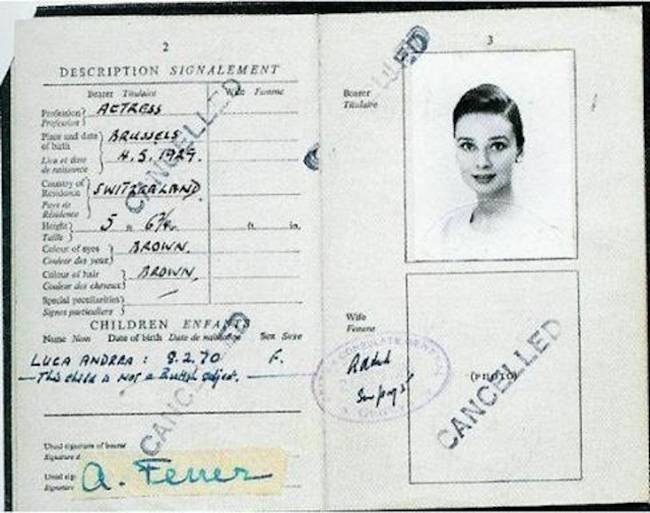 2
DESCRIPTION SIGNALEMENT
Bearer Titulaire Wife Femme
Profession Profession ACTRESS
Place and date of birth BRUSSELS
Lieu et date de naissance 4.5.1929.
Country of Residence SWITZERLAND
Pays de Résidence
Height Taille 5 ft. in.
Colour of eyes BROWN.
Couleur des yeux
Colour of hair BROWN.
Couleur des cheveux
Special peculiarities
Signes particuliers
CHILDREN ENFANTS
Name Nom Date of birth Date de naissance Sex Sexe
LUCA ANDREA: 8.2.70 F.
This child is not a British subject.
Usual signature of bearer
Signature d
Usual sig
Signature
A. Ferrer
CANCELLED
CANCELLED
3
Bearer
Titulaire
Wife
Femme
(PHOTO)
CANCELLED